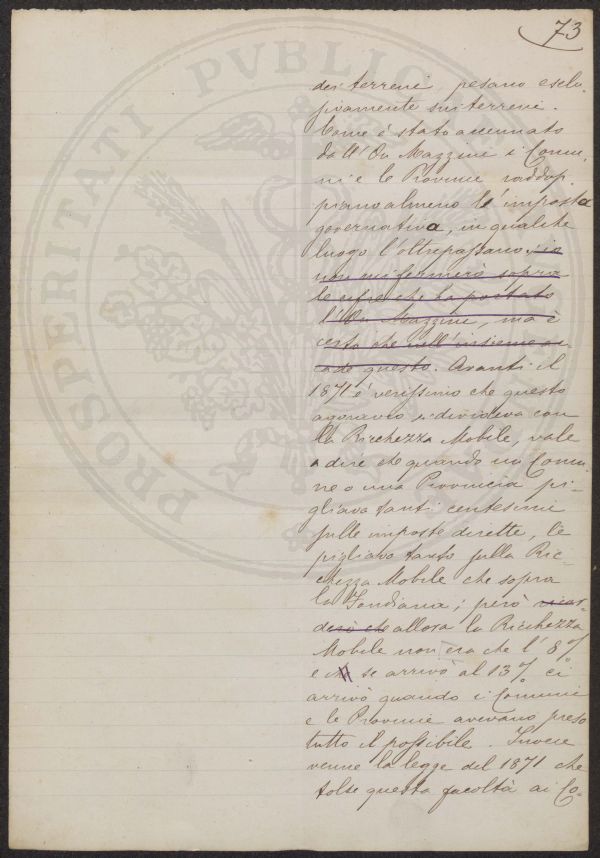 73
PROSPERITATI PVBLICAE
dei terreni, pesano esclu-
sivamente sui terreni.
Come è stato accennato
dall' On Mazzini i Comu-
ni e le Provincie raddop-
piano almeno le imposta
governativa, in qualche
luogo l'oltrepassano; io
non mi fermerò sopra
le cifre che ha portato
l'On Mazzini, ma è
certo che nell'insieme
questo. Avanti il
1871 è verissimo che questo
aggravio si divideva con
la Ricchezza Mobile, vale
a dire che quando un Comu-
ne o una Provincia pi-
gliava tanti centesimi
sulle imposte dirette, le
pigliava tanto sulla Ric-
chezza Mobile che sopra
la Fondiaria; però ricor-
derò che allora la Ricchezza
Mobile non era che l' 8 %
e se arrivò al 13 % ci
arrivò quando i Comuni
e le Provincie avevano preso
tutto il possibile. Invece
venne la legge del 1871 che
tolse questa facoltà ai Co-